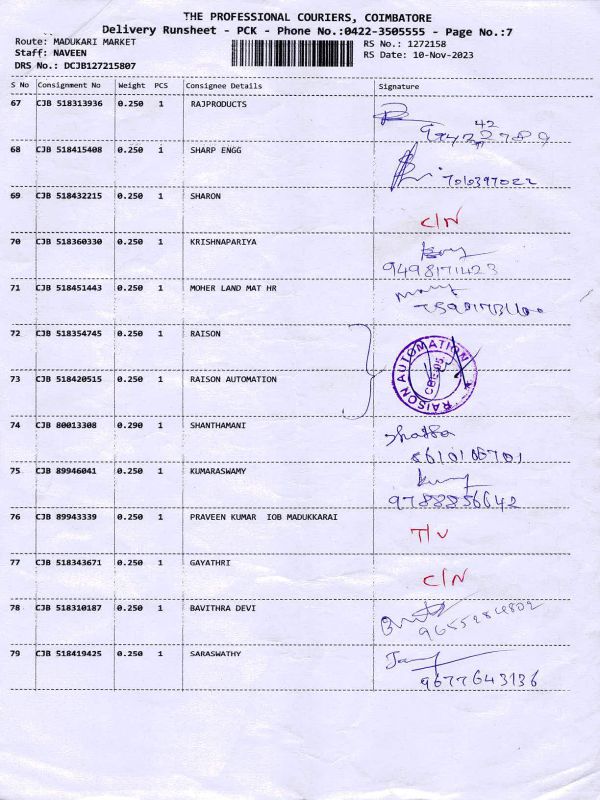 THE PROFESSIONAL COURIERS, COIMBATORE
Delivery Runsheet - PCK - Phone No.:0422-3505555 - Page No.:7
Route: MADUKARI MARKET RS No.: 1272158
Staff: NAVEEN RS Date: 10-Nov-2023
DRS No.: DCJB127215807
S No Consignment No Weight PCS Consignee Details Signature
67 CJB 518313936 0.250 1 RAJPRODUCTS
42
68 CJB 518415408 0.250 1 SHARP ENGG
7010397022
69 CJB 518432215 0.250 1 SHARON
C/N
70 CJB 518360330 0.250 1 KRISHNAPARIYA
9498171423
71 CJB 518451443 0.250 1 MOHER LAND MAT HR
72 CJB 518354745 0.250 1 RAISON
RAISON AUTOMATION
73 CJB 518420515 0.250 1 RAISON AUTOMATION
74 CJB 80013308 0.290 1 SHANTHAMANI
75 CJB 89946041 0.250 1 KUMARASWAMY
9788856642
76 CJB 89943339 0.250 1 PRAVEEN KUMAR IOB MADUKKARAI
T/V
77 CJB 518343671 0.250 1 GAYATHRI
C/N
78 CJB 518310187 0.250 1 BAVITHRA DEVI
9655284802
79 CJB 518419425 0.250 1 SARASWATHY
9677643136